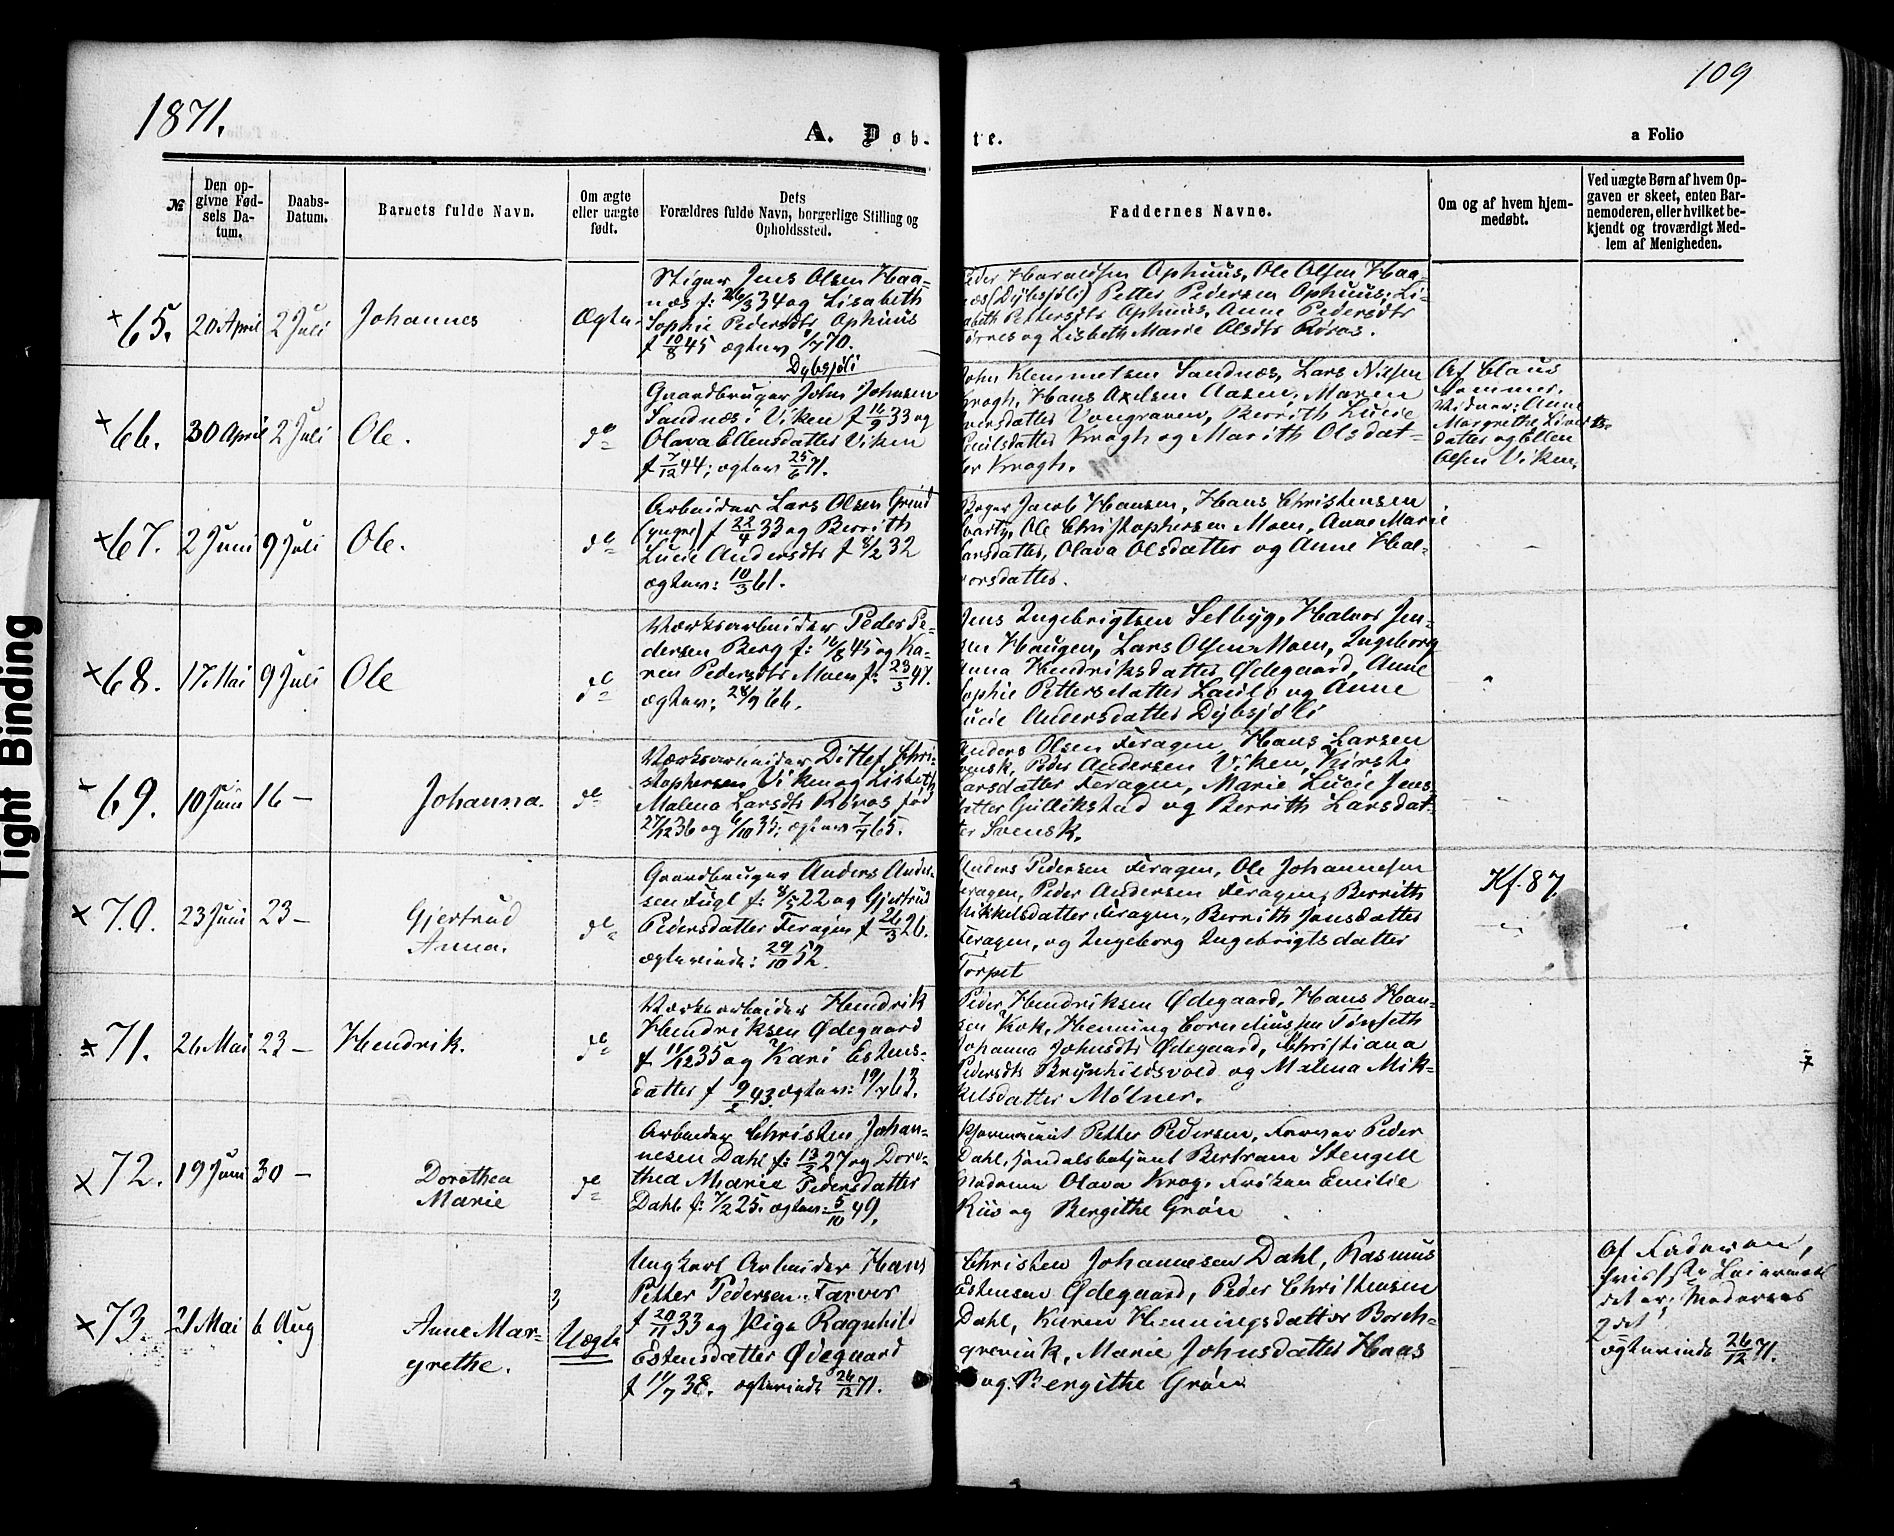 109
1871.
A. Døb-
te.
a Folio
№
Den op-
givne Fød-
sels Da-
tum.
Daabs-
Datum.
Barnets fulde Navn.
Om ægte
eller uægte
født.
Dets
Forældres fulde Navn, borgerlige Stilling og
Opholdssted.
Faddernes Navne.
Om og af hvem hjem-
medøbt.
Ved uægte Børn af hvem Op-
gaven er skeet, enten Bar-
nemoderen, eller hvilket be-
kjendt og troværdigt Med-
lem af Menigheden.
65. 20 April 2 Juli Johannes Ægte
Stiger Jens Olsen Haa-
næs f: 26/3 34 og Lisabeth
Sophie Pedersdtr Ophuus
f 10/8 45 ægtev 9/7 70.
Dybsjøli
Peder Haraldsen Ophuus, Ole Olsen Haa-
næs (Dybsjøli) Petter Pedersen Ophuus; Li-
sabeth Pettersdtr Ophuus, Anne Pedersdtr
og Lisbeth Marie Olsdtr Røros.
66. 30 April 2 Juli Ole. do
Gaardbruger John Johnsen
Sandnæs i Viken f 16/9 33 og
Olava Ellensdatter Viken
f 7/12 44; ægtev 25/6 71.
John Klemmetsen Sandnæs, Lars Nilsen
Krogh, Hans Axelsen Aasen, Maren
Iversdatter Vongraven, Berrith Lucie
Krogh og Marith Olsdat-
ter Krogh.
Af Claus
Sommer.
Vidner: Anne
Margrethe
datter og Ellen
Olsen Viken.
67. 2 Juni 9 Juli Ole. do
Arbeider Lars Olsen Grind
(yngre) f 22/4 33 og Berrith
Lucie Andersdtr f 8/2 32
ægtev: 10/3 61.
Jacob Hansen, Hans Christensen
Ole Christophersen Moen, Anne Marie
Larsdatter, Olava Olsdatter og Anne Hal-
vorsdatter.
68. 17 Mai 9 Juli Ole do
Værksarbeider Peder Pe-
dersen Berg f: 16/8 45 og Ka-
ren Pedersdtr Moen f: 23/3 47.
ægtev: 28/9 66.
Jens Ingebrigtsen Selbyg, Halvor Jen-
sen Haugen, Lars Olsen Moen, Ingeborg
Anna Hendriksdatter Ødegaard, Anne
Sophie Pettersdatter og Anne
Lucie Andersdatter Dybsjøli
69. 10 Juni 16 — Johanna. do
Værksarbeider Ditlef Chri-
stophersen Viken og Lisbeth
Malena Larsdtr Røros fød
27/12 36 og 6/10 35; ægtev 7/7 65.
Anders Olsen Feragen, Hans Larsen
Svensk, Peder Andersen Viken, Kirsti
Larsdatter Feragen, Marie Lucie Jens-
datter Gullikstad og Berrith Larsdat-
ter Svensk.
70. 23 Juni 23 — Gjertrud
Anna. do
Gaardbruger Anders Ander-
sen Fugl f: 8/5 22 og Gjertrud
Pedersdatter Feragen f 26/3 26.
ægteviede: 29/10 52.
Anders Pedersen Feragen, Ole Johannesen
Feragen, Peder Andersen Feragen, Berrith
Mikkelsdatter Feragen, Berrith Jonsdatter
Feragen, og Ingeborg Ingebrigtsdatter
Torpet
Kf. 87
71. 26 Mai 23 — Hendrik. do
Værksarbeider Hendrik
Hendriksen Ødegaard
f 11/12 35 og Kari Estens-
datter f 9/2 43. ægtev: 19/7 63.
Peder Hendriksen Ødegaard, Hans Han-
sen Kok, Henning Corneliussen Tønseth
Johanna Johnsdtr Ødegaard, Christiana
Pedersdtr Brynhildsvold og Malena Mik-
kelsdatter Mølner.
72. 19 Juni 30 — Dorothea
Marie do
Arbeider Christen Johan-
nesen Dahl f: 13/2 27 og Doro-
thea Marie Pedersdatter
Dahl f: 7/2 25. ægtev: 5/10 49.
Petter Pedersen, Farver Peder
Dahl, Handelsbetjent Bertram Stengell
Madame Olava Krog, Frøken Emilie
Riis og Bergithe Grøn
73. 21 Mai 6 Aug Anne Mar-
grethe. 3 Uægte
Ungkarl Arbeider Hans
Petter Pedersen Farver
f 20/11 33 og Pige Ragnhild
Estensdatter Ødegaard
f 19/7 38. ægteviede 26/12 71.
Christen Johannesen Dahl, Rasmus
Estensen Ødegaard, Peder Christensen
Dahl, Karen Henningsdatter Borch-
grevink, Marie Johnsdatter Haas
og Bergithe Grøn
Af Faderen,
hvis Leiermaal
det er; Moderens
2det
ægteviede 26/12 71.
Tight Binding